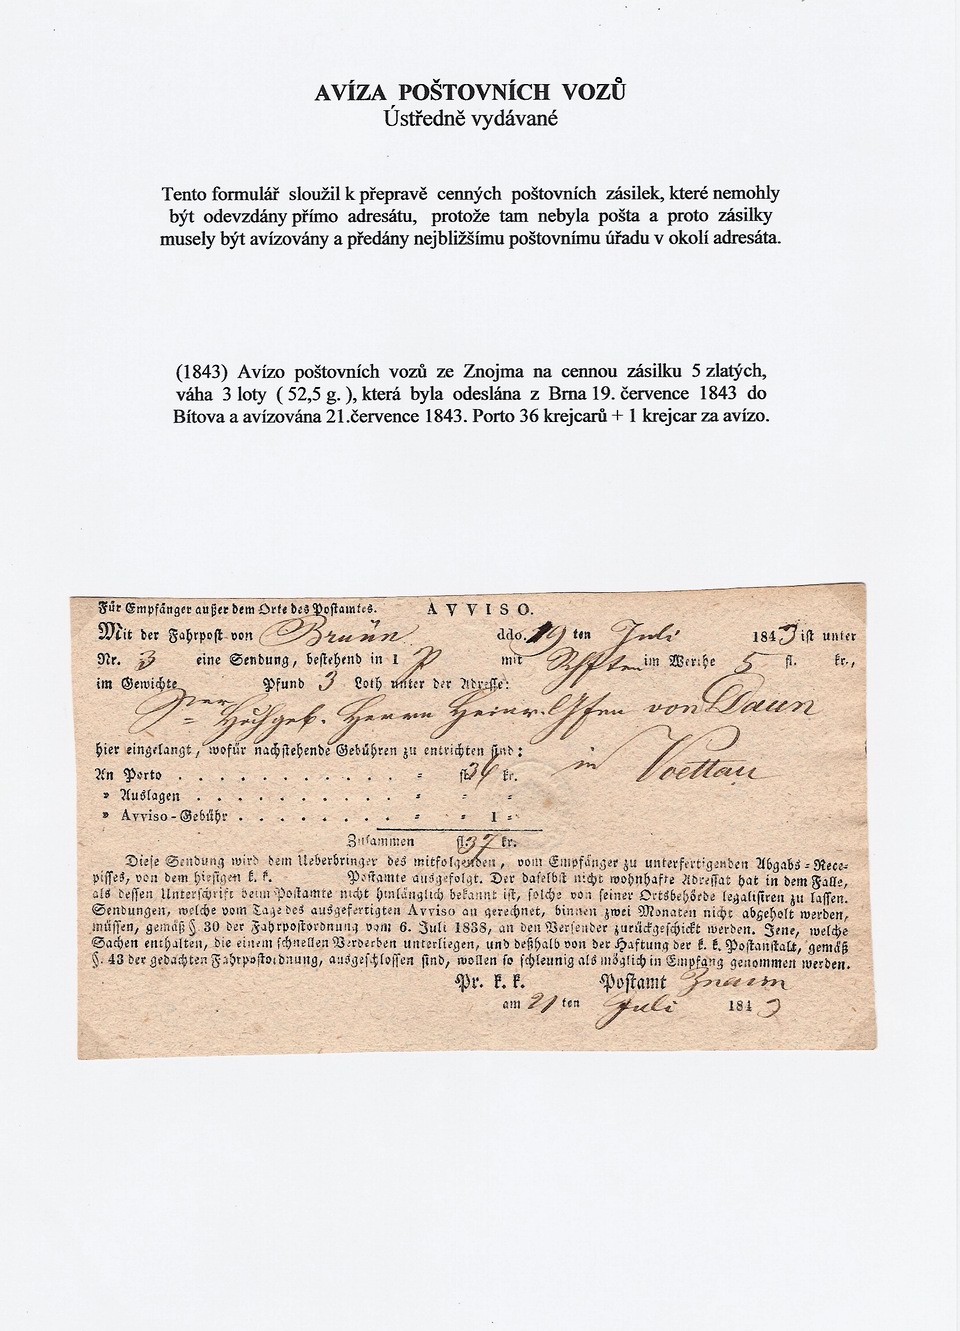 AVÍZA POŠTOVNÍCH VOZŮ
Ústředně vydávané
Tento formulář sloužil k přepravě cenných poštovních zásilek, které nemohly
být odevzdány přímo adresátu, protože tam nebyla pošta a proto zásilky
musely být avízovány a předány nejbližšímu poštovnímu úřadu v okolí adresáta.
(1843) Avízo poštovních vozů ze Znojma na cennou zásilku 5 zlatých,
váha 3 loty ( 52,5 g. ), která byla odeslána z Brna 19. července 1843 do
Bítova a avízována 21.července 1843. Porto 36 krejcarů + 1 krejcar za avízo.
Für Empfänger außer dem Orte des Postamtes. AVVISO.
Mit der Fahrpost von Brünn ddo. 19 ten Juli 1843 ist unter
Nr. 3 eine Sendung, bestehend in 1 P mit Schften im Werthe 5 fl. kr.,
im Gewichte Pfund 3 Loth unter der Adresse:
Herrn Heinr. Gfen von Daun
hier eingelangt, wofür nachstehende Gebühren zu entrichten sind:
in Voettau
An Porto . . . . . . . . . . . = fl. 36 kr.
» Auslagen . . . . . . . . . . = = =
» Avviso-Gebühr . . . . . . . . = = 1 =
Zusammen fl. 37 kr.
Diese Sendung wird dem Ueberbringer des mitfolgenden, vom Empfänger zu unterfertigenden Abgabs=Rece-
pisses, von dem hiesigen k. k. Postamte ausgefolgt. Der daselbst nicht wohnhafte Adressat hat in dem Falle,
als dessen Unterschrift beim Postamte nicht hinlänglich bekannt ist, solche von seiner Ortsbehörde legalisiren zu lassen.
Sendungen, welche vom Tage des ausgefertigten Avviso an gerechnet, binnen zwei Monaten nicht abgeholt werden,
müssen, gemäß §. 30 der Fahrpostordnung vom 6. Juli 1838, an den Versender zurückgeschickt werden. Jene, welche
Sachen enthalten, die einem schnellen Verderben unterliegen, und deßhalb von der Haftung der k. k. Postanstalt, gemäß
§. 43 der gedachten Fahrpostordnung, ausgeschlossen sind, wollen so schleunig als möglich in Empfang genommen werden.
Pr. k. k. Postamt Znaim
am 21 ten Juli 1843